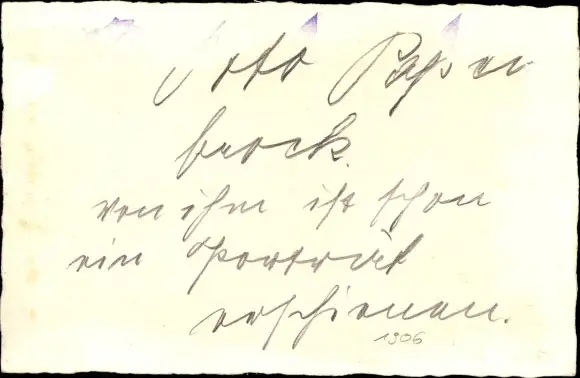 Foto Papen
brock.
von ihm ist schon
ein Porträt
erschienen.
1906